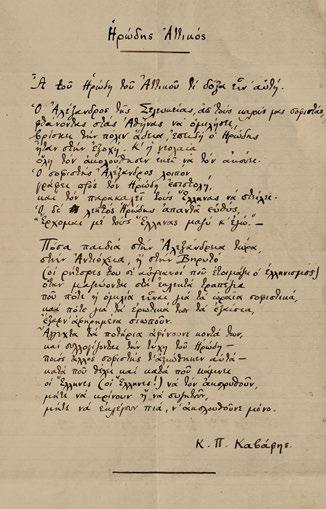 Ἡρώδης Ἀττικός
Ἆ τοῦ Ἡρώδη τοῦ Ἀττικοῦ τί δόξα εἶν' αὐτή.
Ὁ Ἀλέξανδρος τῆς Σελευκείας, ἀπ' τοὺς καλούς μας σοφιστάς,
φθάνοντας στὰς Ἀθήνας νὰ ὁμιλήσει,
βρίσκει τὴν πόλιν ἄδεια, ἐπειδὴ ὁ Ἡρώδης
ἦταν στὴν ἐξοχή. Κ' ἡ νεολαία
ὅλη τὸν ἀκολούθησεν ἐκεῖ νὰ τὸν ἀκούει.
Ὁ σοφιστὴς Ἀλέξανδρος λοιπὸν
γράφει πρὸς τὸν Ἡρώδη ἐπιστολή,
καὶ τὸν παρακαλεῖ τοὺς Ἕλληνας νὰ στείλει.
Ὁ δὲ λεπτὸς Ἡρώδης ἀπαντᾶ εὐθύς,
«Ἔρχομαι μὲ τοὺς Ἕλληνας μαζὺ κ' ἐγώ.»—
Πόσα παιδιὰ στὴν Ἀλεξάνδρεια τώρα,
στὴν Ἀντιόχεια, ἢ στὴν Βηρυτὸ
(οἱ ρήτορές του οἱ αὐριανοὶ ποὺ ἑτοιμάζει ὁ ἑλληνισμός)
ὅταν μαζεύονται στὰ ἐκλεκτὰ τραπέζια
ποὺ πότε ἡ ὁμιλία εἶναι γιὰ τὰ ὡραῖα σοφιστικά,
καὶ πότε γιὰ τὰ ἐρωτικά των τὰ ἐξαίσια,
ἔξαφν' ἀφηρημένα σιωποῦν.
Ἄγγιχτα τὰ ποτήρια ἀφίνουνε κοντά των,
καὶ συλλογίζονται τὴν τύχη τοῦ Ἡρώδη—
ποιὸς ἄλλος σοφιστὴς τ' ἀξιώθηκεν αὐτά;—
κατὰ ποὺ θέλει καὶ κατὰ ποὺ κάμνει
οἱ Ἕλληνες (οἱ Ἕλληνες!) νὰ τὸν ἀκολουθοῦν,
μήτε νὰ κρίνουν ἢ νὰ συζητοῦν,
μήτε νὰ ἐκλέγουν πιά, ν' ἀκολουθοῦνε μόνο.
Κ. Π. Καβάφης.